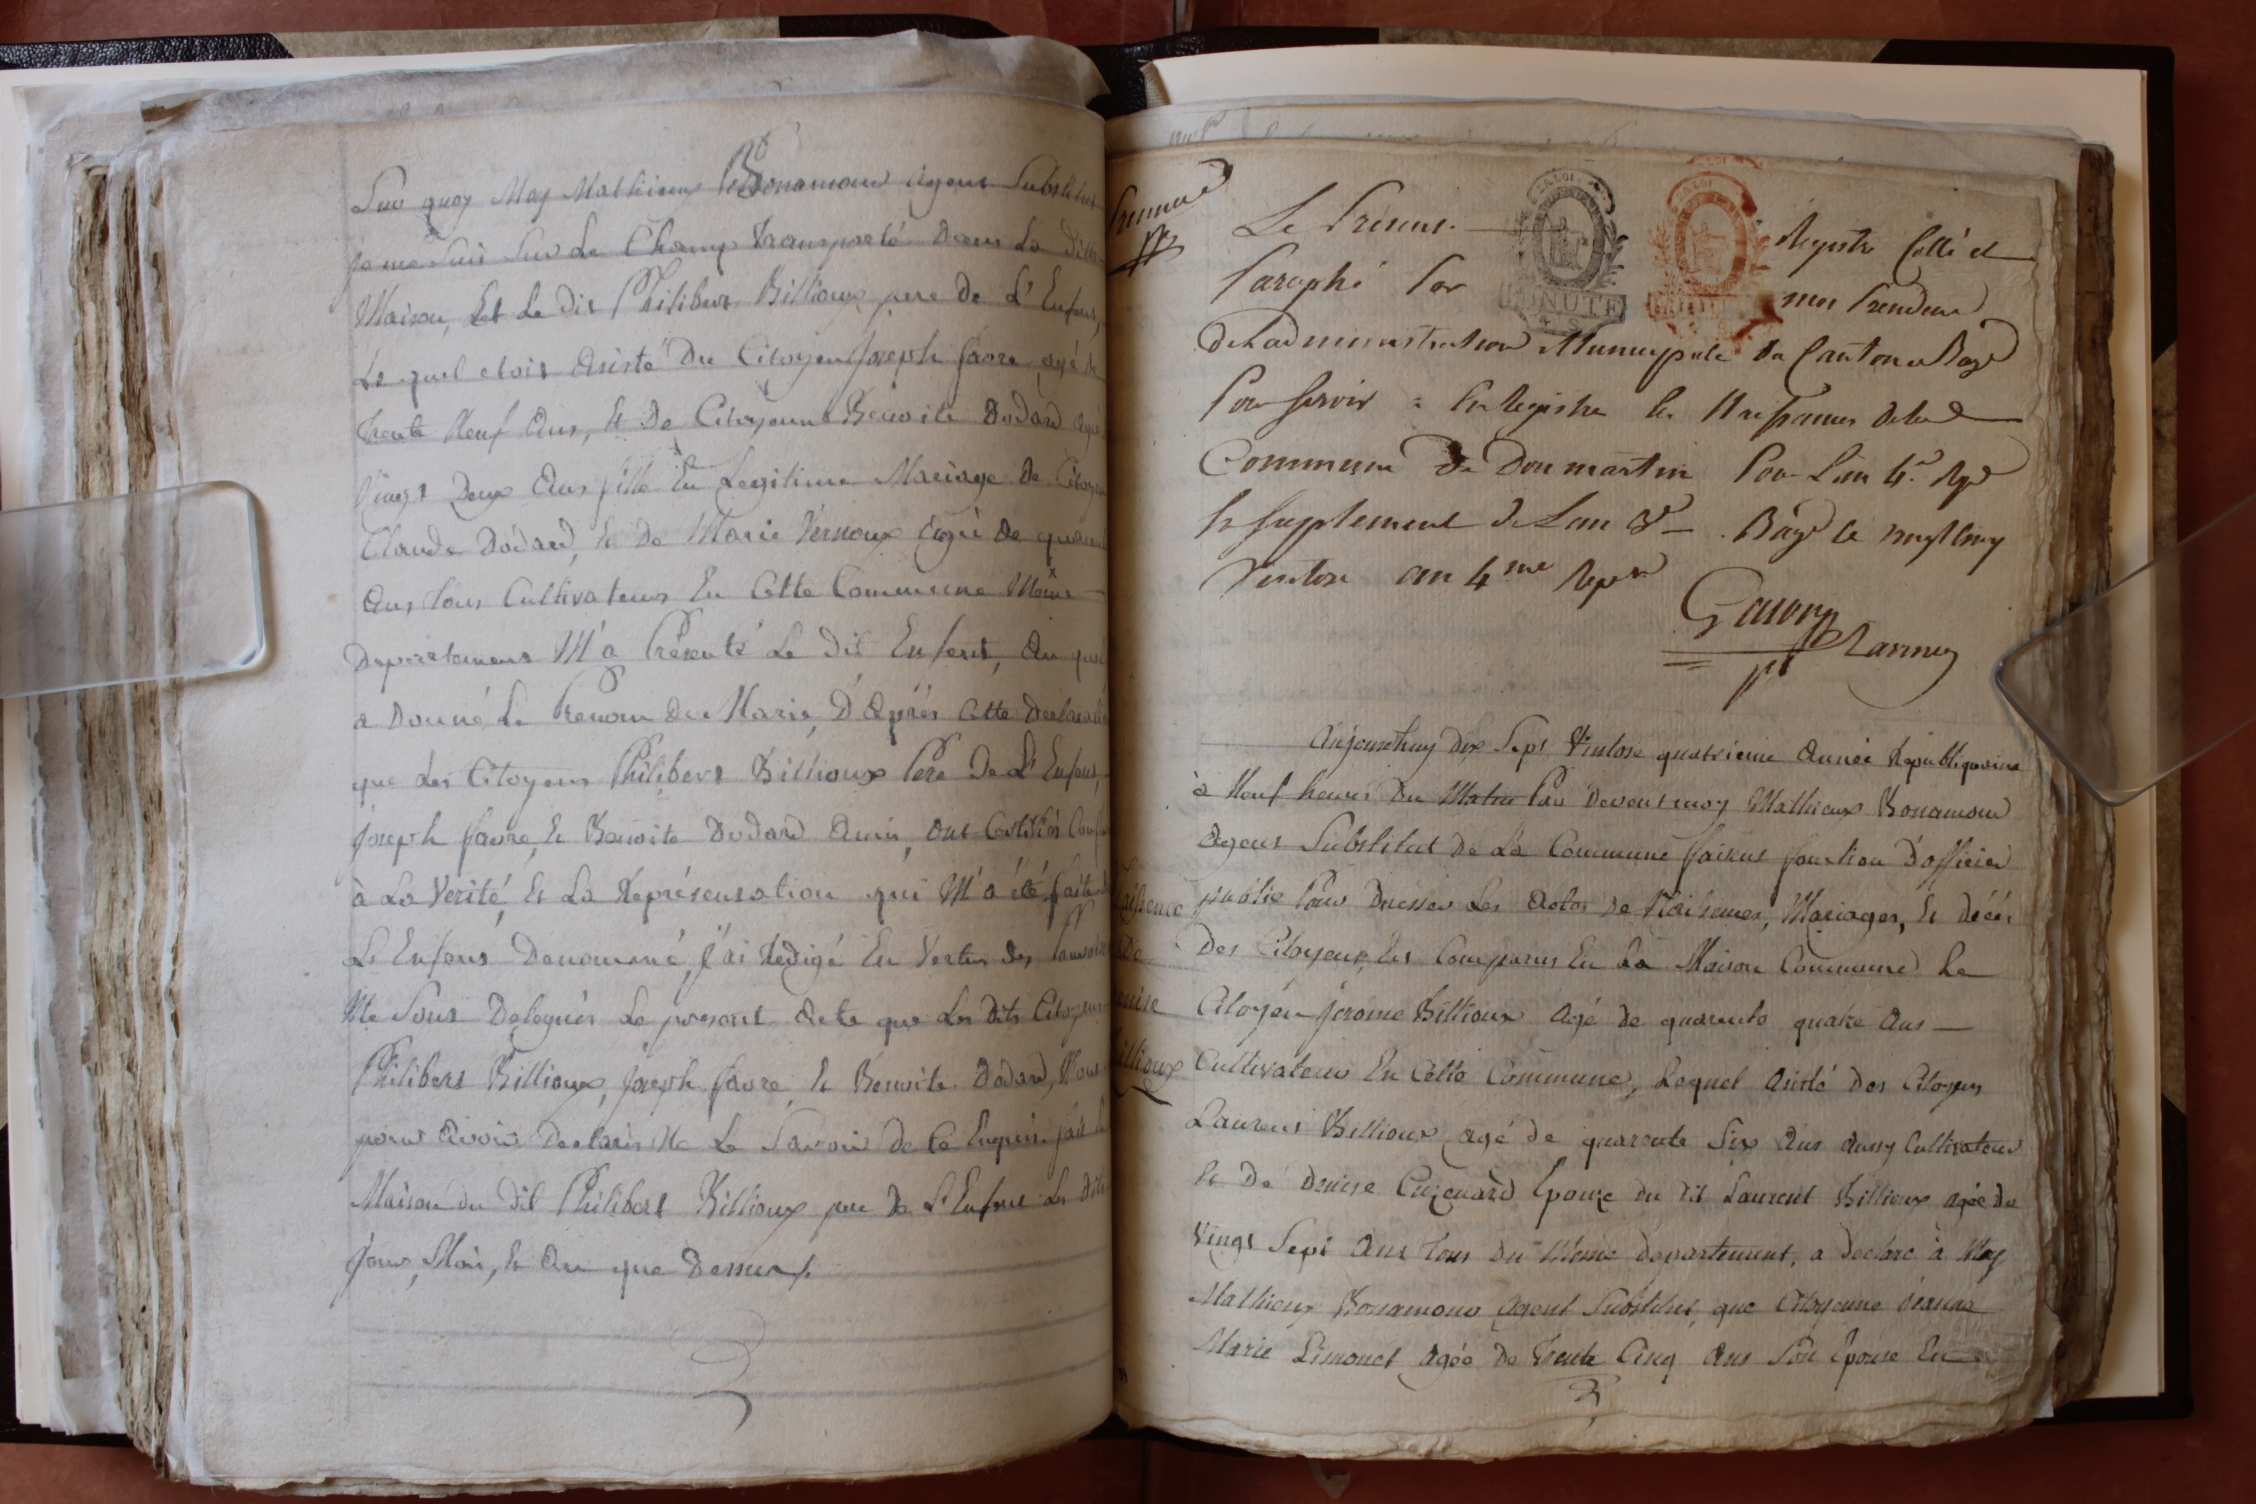 Sur quoy Moy Mathieux Bonamour agent Substitut
je me suis Sur Le Champ Transporté Dans La ditte
Maison, Et Le dit Philibert Billioux pere De L'Enfant,
Le quel etoit Assisté Du Citoyen Joseph favre agé de
Trente Neuf Ans, Et De Citoyenne Benoite Dodard Agé
Vingt Deux Ans fille En Legitime Mariage De Citoyen
Claude Dodard, Et De Marie Vernoux Agé de
Ans tous Cultivateurs En Cette Commune Même
Departement M'a Présenté Le dit Enfant, Au quel
a Donné Le Prenom De Marie, D'Après Cette declaration
que Les Citoyens Philibert Billioux Pere De L'Enfant,
Joseph favre, Et Benoite Dodard Amis, Ont Certifiés
à La Verité, Et La Représentation qui M'a été faite
L'Enfant Denommé, J'ai Redigé En Vertus Des Pouvoirs
Me Sont Delegués Le present Acte que Les dits Citoyens
Philibert Billioux, Joseph favre, Et Benoite Dodard,
pour Avoir Declarés Ne Le Savoir De Ce Enquis. fait
Maison du dit Philibert Billioux pere De L'Enfant Les dits
Jour, Mois, Et An que Dessus.
Le Présent Registre Cotté et
Paraphé Par
MINUTE
De L'administration Municipale du Canton de Bagé
Pour Servir a Enregistrer les Naissances de la
Commune de Donmartin Pour L'an 4.e
Et Supplement de L'an 3e Bagé le
Ventose an 4me
Aujourdhuy Dix Sept Ventose quatrieme Année Republiquaine
à Neuf heures Du Matin Par Devant moy Mathieux Bonamour
Agent Substitut De La Commune faisant fonction D'officier
public Pour Dresser Les Actes De Naissances, Mariages, Et décés
Des Citoyens, Est Comparus En La Maison Commune Le
Citoyen Jerome Billioux Agé de quarente quatre Ans
Cultivateur En Cette Commune, Lequel Assisté Des Citoyens
Laurent Billioux agé de quarente Six Ans Aussy Cultivateur
Et De Denise Epouse du dit Laurent Billioux agée De
Vingt Sept Ans Tous Du Même departement, a declaré à Moy
Mathieux Bonamour Agent Substitut, que Citoyenne
Marie Limonet Agée De Trente Cinq Ans Son Epouse En